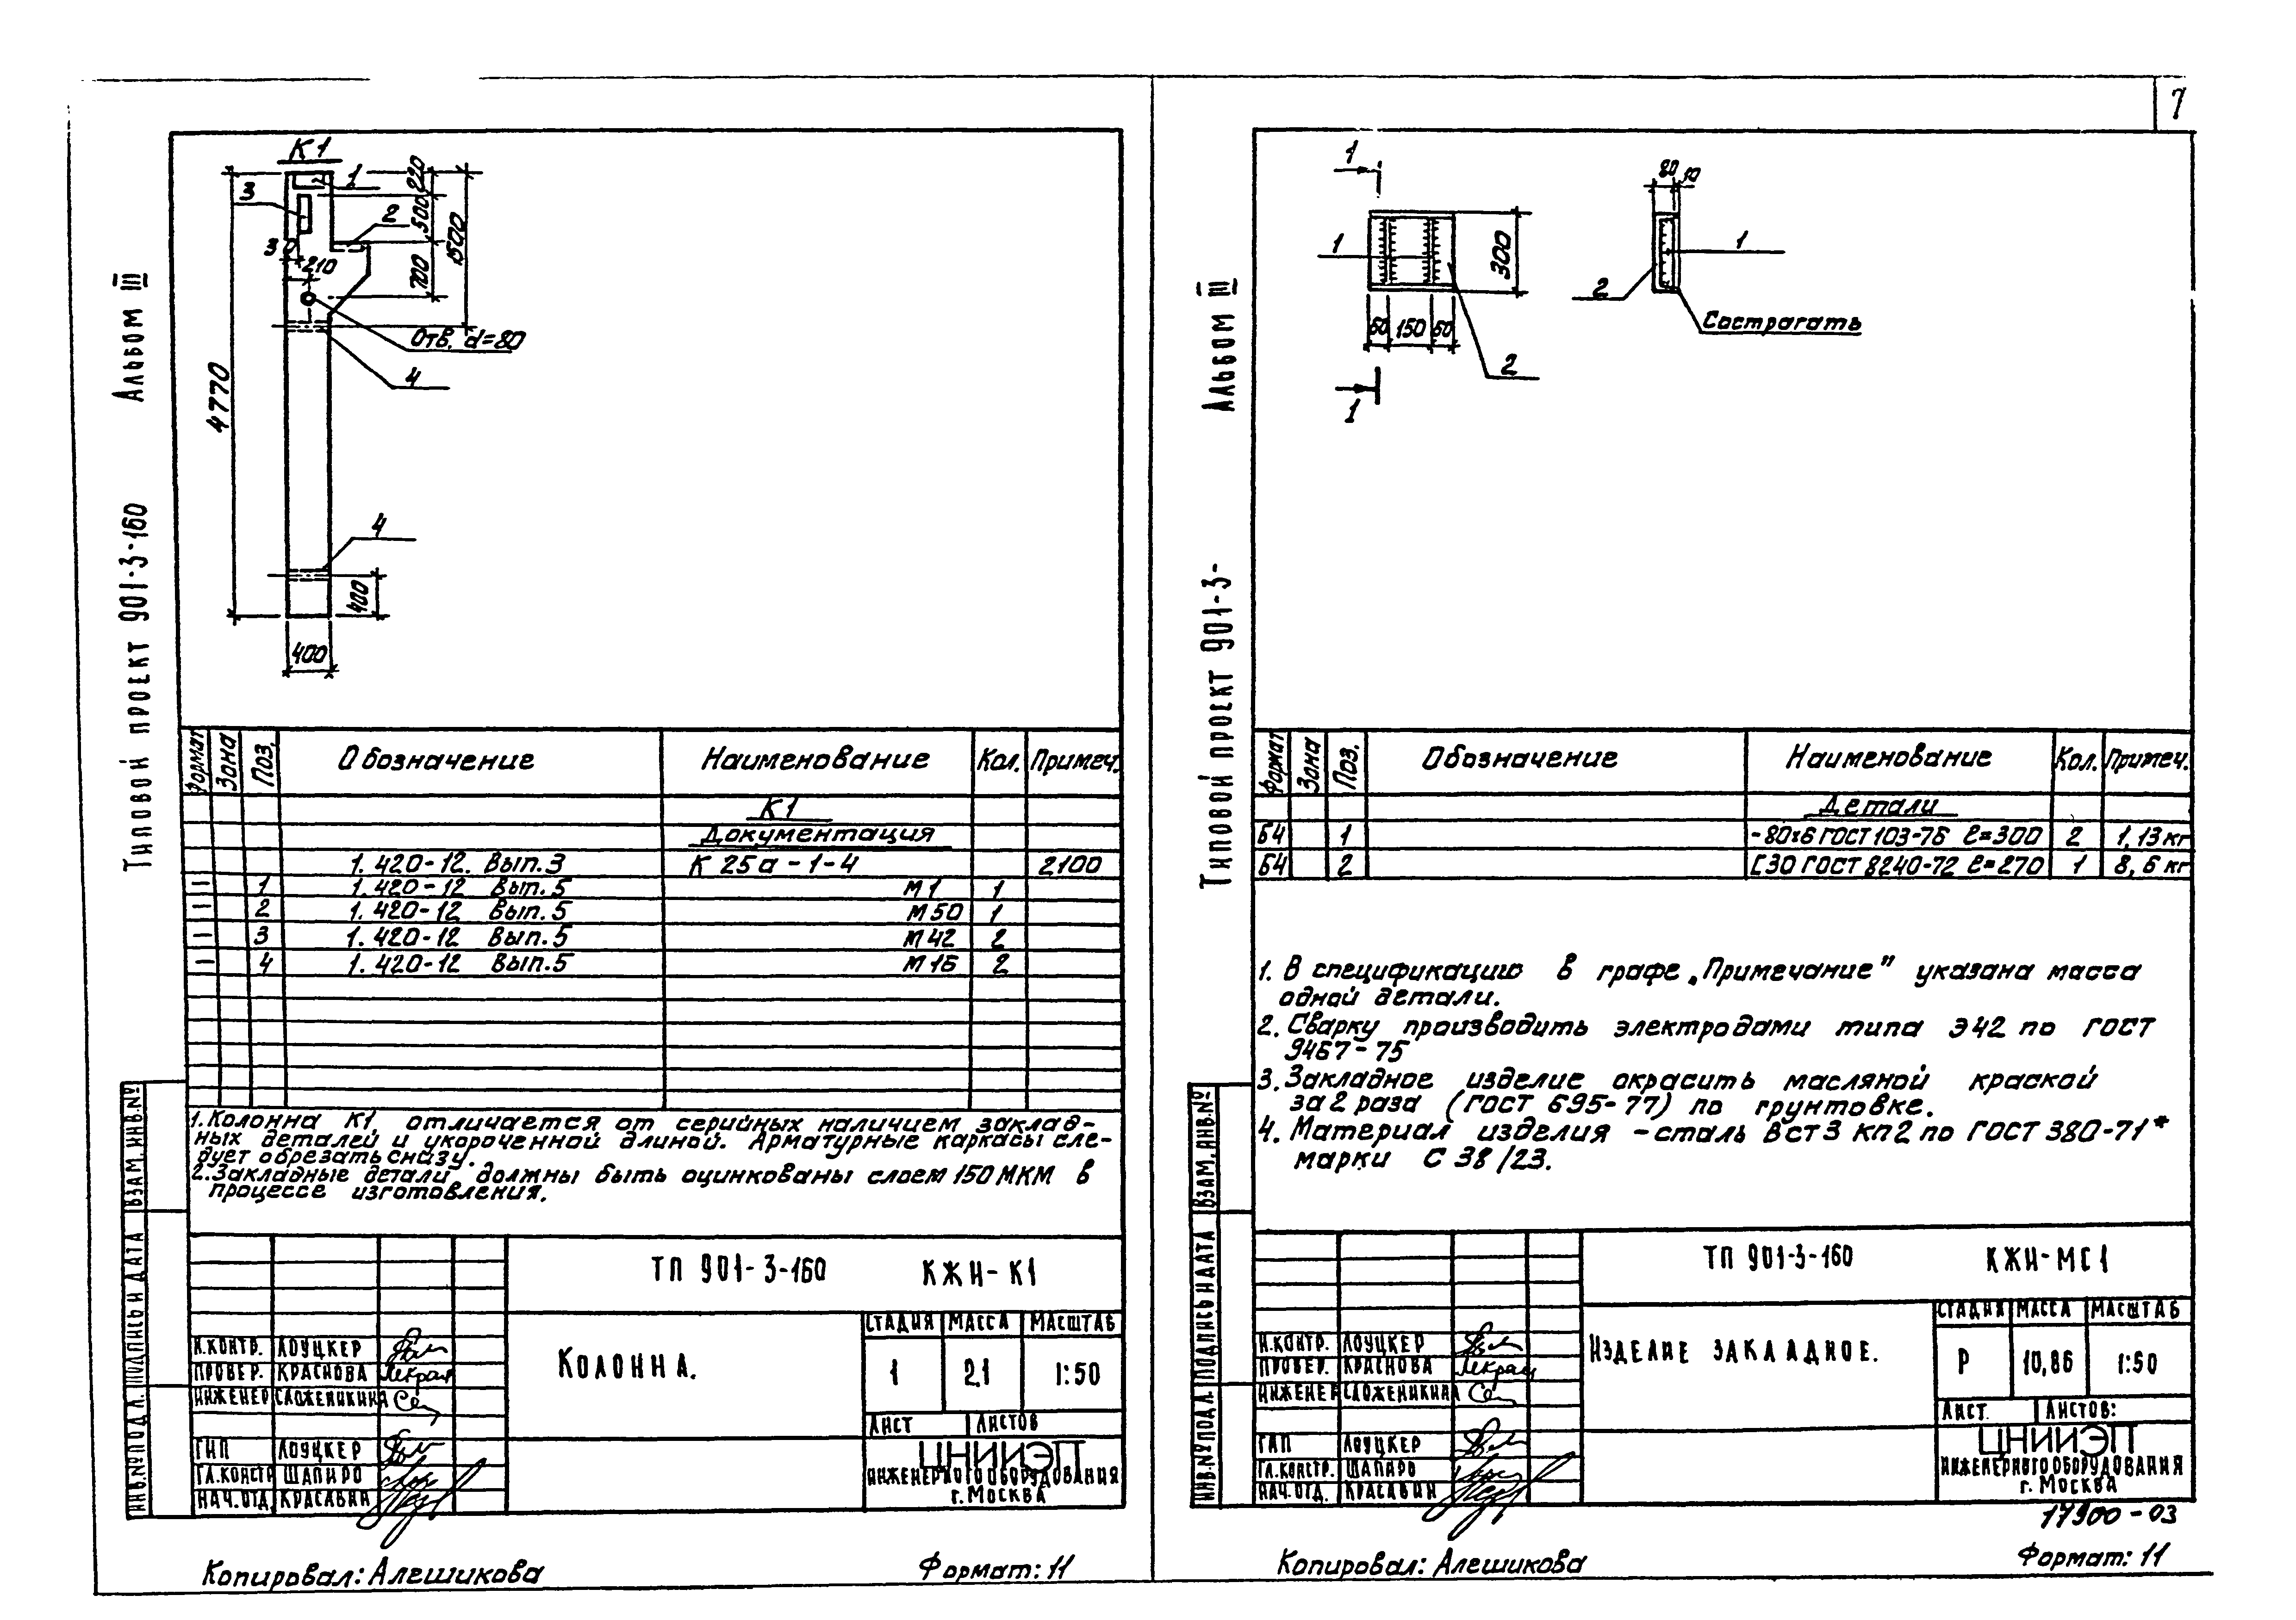 7
Альбом III
Типовой проект 901-3-160
К1
1
3
2
220
500
1500
700
30
210
Отв. d=80
4
4770
4
400
400
Формат
Зона
Поз.
Обозначение
Наименование
Кол.
Примеч.
К1
Документация
1.420-12. Вып.3 К 25а-1-4 2100
— 1 1.420-12 Вып.5 М1 1
— 2 1.420-12 Вып.5 М50 1
— 3 1.420-12 Вып.5 М42 2
— 4 1.420-12 Вып.5 М16 2
1. Колонна К1 отличается от серийных наличием заклад-
ных деталей и укороченной длиной. Арматурные каркасы сле-
дует обрезать снизу.
2. Закладные детали должны быть оцинкованы слоем 150 МКМ в
процессе изготовления.
ВЗАМ. ИНВ.№
ПОДПИСЬ И ДАТА
ИНВ.№ ПОДЛ.
ТП 901-3-160 КЖИ-К1
Колонна.
СТАДИЯ МАССА МАСШТАБ
1 2.1 1:50
ЛИСТ ЛИСТОВ
Н.КОНТР. ЛОУЦКЕР
ПРОВЕР. КРАСНОВА
ИНЖЕНЕР СЛОЖЕНИКИНА
ГИП ЛОУЦКЕР
ГЛ.КОНСТР ШАПИРО
НАЧ.ОТД. КРАСАВИН
ЦНИИЭП
ИНЖЕНЕРНОГО ОБОРУДОВАНИЯ
г. МОСКВА
Копировал: Алешикова
Формат: 11
Альбом III
Типовой проект 901-3-
1
1
2
300
50 150 50
1
80
10
1
2
Сострагать
Формат
Зона
Поз.
Обозначение
Наименование
Кол.
Примеч.
Детали
Б4 1 -80×6 ГОСТ 103-76 ℓ=300 2 1,13 кг
Б4 2 [30 ГОСТ 8240-72 ℓ=270 1 8,6 кг
1. В спецификацию в графе „Примечание" указана масса
одной детали.
2. Сварку производить электродами типа Э42 по ГОСТ
9467-75
3. Закладное изделие окрасить масляной краской
за 2 раза (ГОСТ 695-77) по грунтовке.
4. Материал изделия - сталь ВСт3 кп2 по ГОСТ 380-71*
марки С 38/23.
ВЗАМ. ИНВ.№
ПОДПИСЬ И ДАТА
ИНВ.№ ПОДЛ.
ТП 901-3-160 КЖИ-МС1
Изделие закладное.
СТАДИЯ МАССА МАСШТАБ
Р 10,86 1:50
ЛИСТ. ЛИСТОВ:
Н.КОНТР. ЛОУЦКЕР
ПРОВЕР. КРАСНОВА
ИНЖЕНЕР СЛОЖЕНИКИНА
ГАП ЛОУЦКЕР
ГЛ.КОНСТР. ШАПИРО
НАЧ.ОТД. КРАСАВИН
ЦНИИЭП
ИНЖЕНЕРНОГО ОБОРУДОВАНИЯ
г. МОСКВА
17900-03
Копировал: Алешикова
Формат: 11